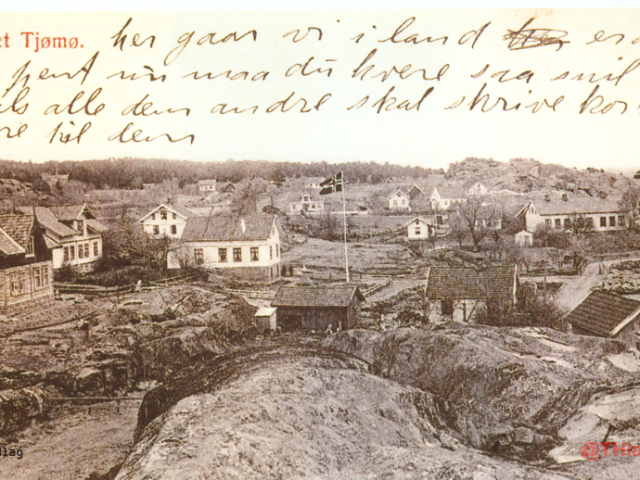 et Tjømø. her gaar vi i land er
pent nu maa du hvere saa snil
als alle dem andre skal skrive kor
re til dem
lag